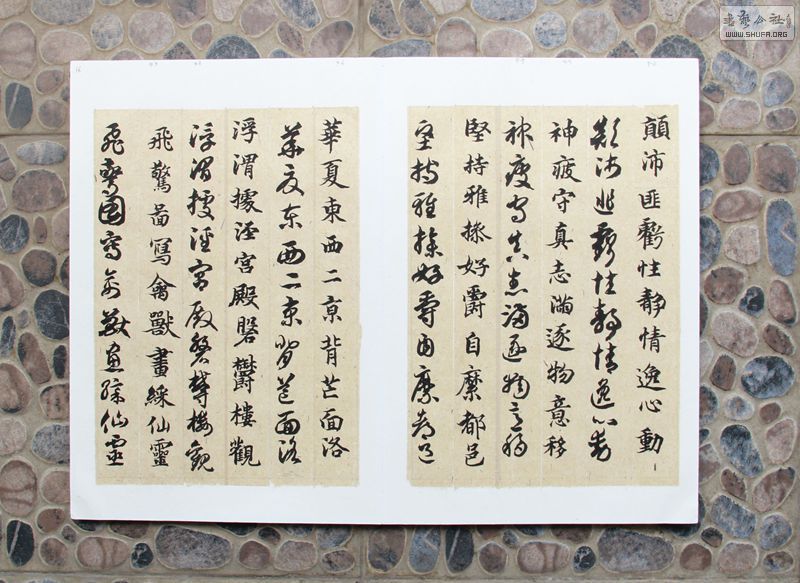 顛沛匪虧性靜情逸心動
顛沛匪虧性靜情逸心動
神疲守真志滿逐物意移
神疲守真志滿逐物意移
堅持雅操好爵自縻都邑
堅持雅操好爵自縻都邑
華夏東西二亰背芒面洛
華夏東西二京背芒面洛
浮渭據涇宮殿磐鬱樓觀
浮渭據涇宮殿磐鬱樓觀
飛驚啚寫禽獸畫綵仙靈
飛驚圖寫禽獸畫綵仙靈
書藝公社
WWW.SHUFA.ORG